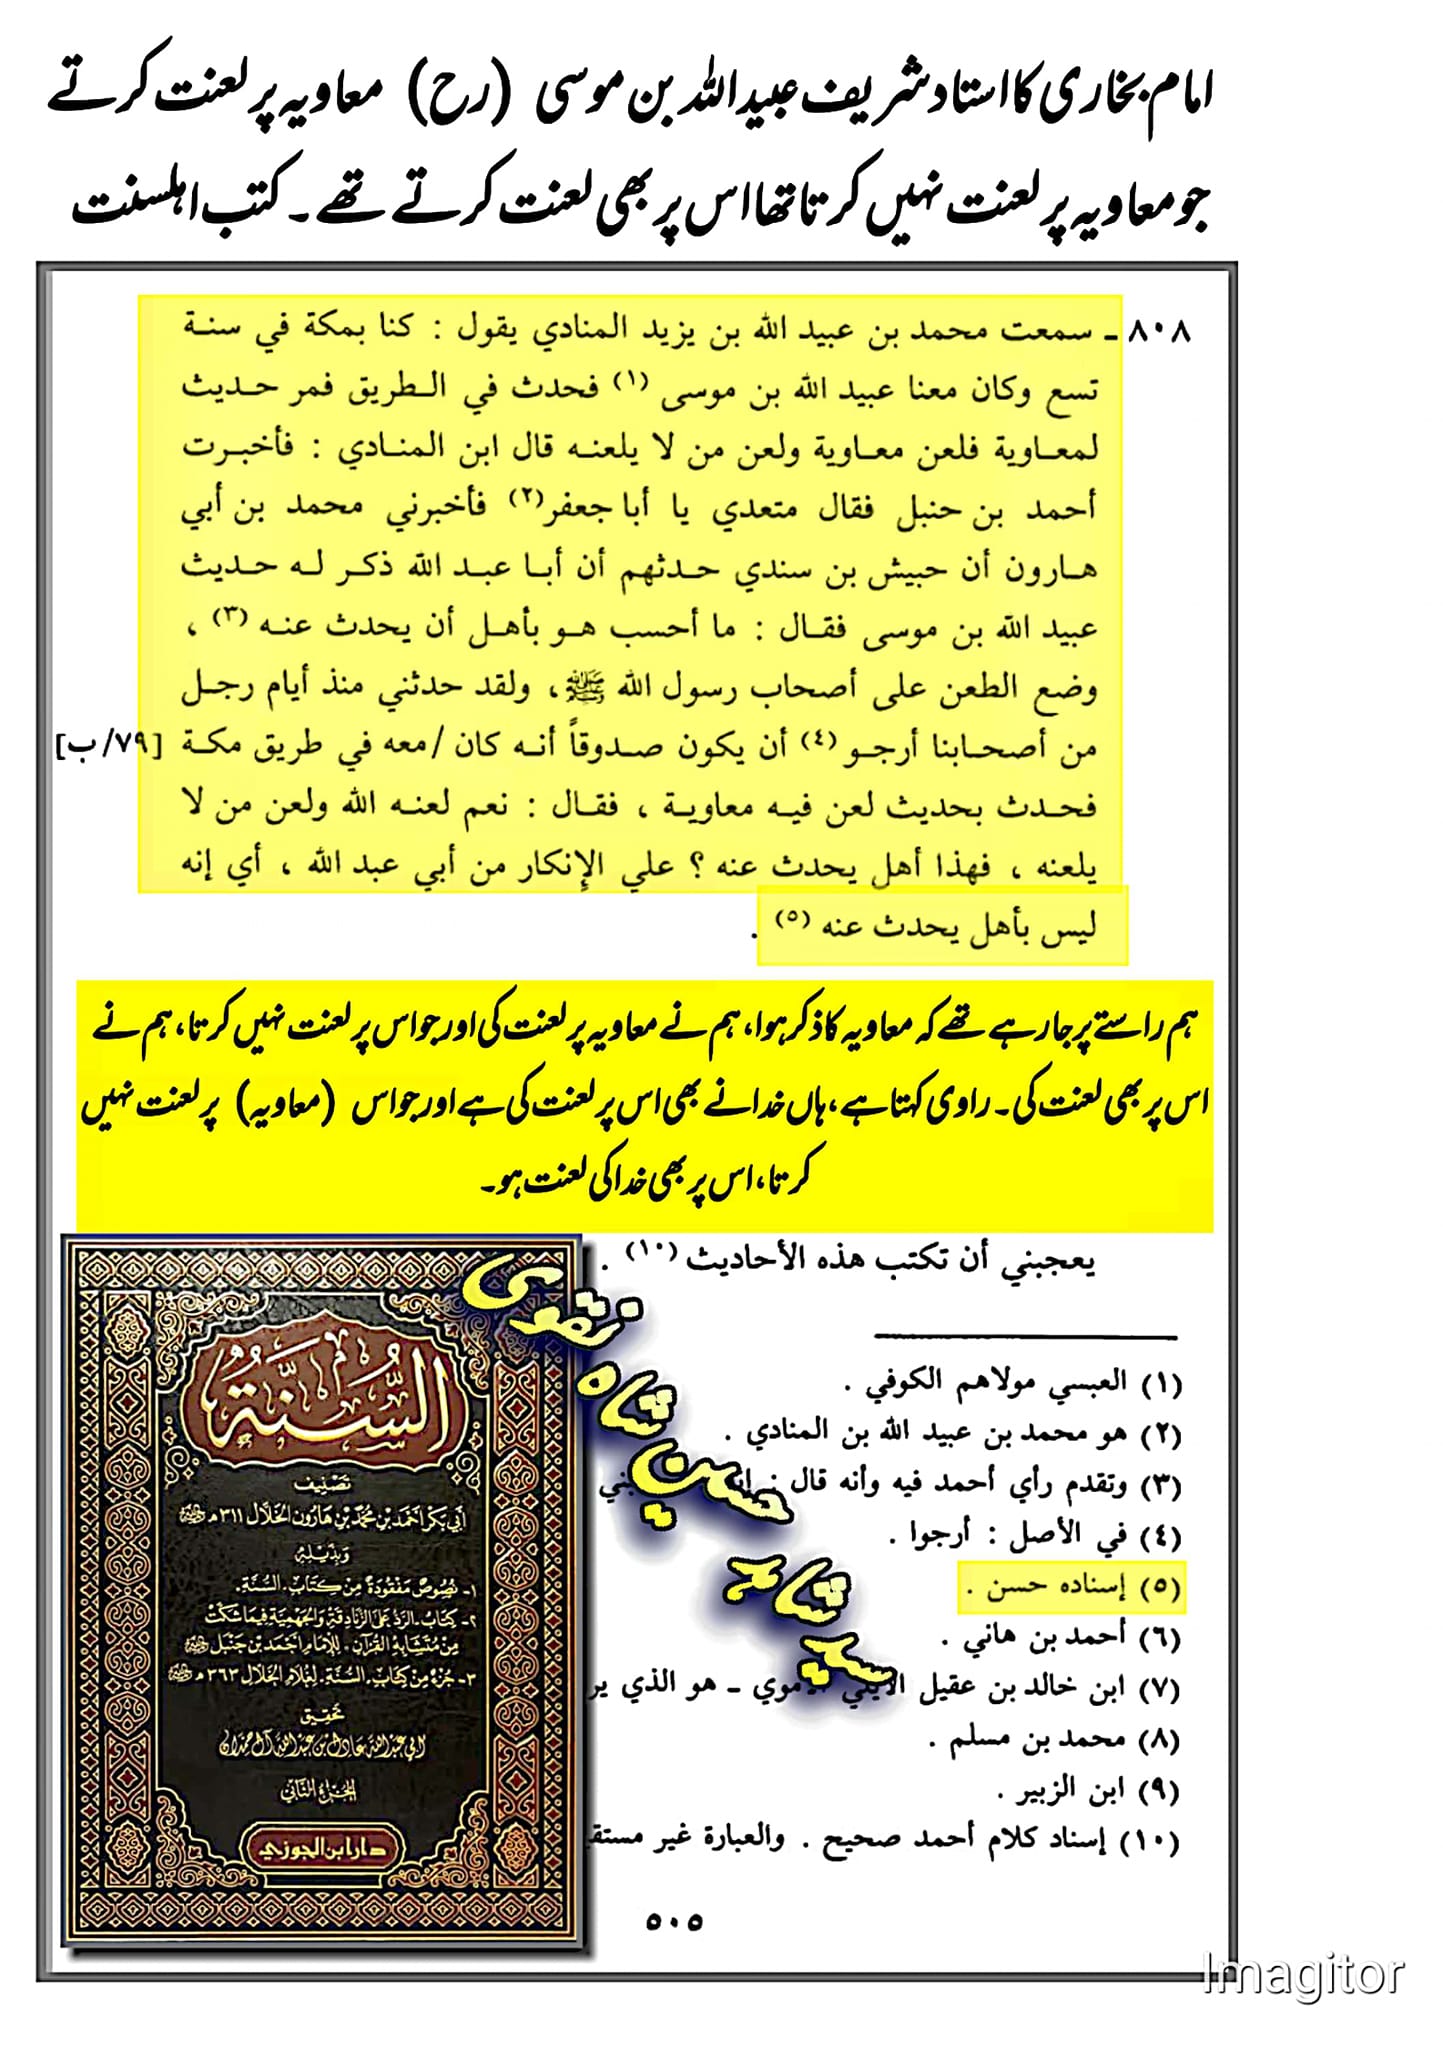 امام بخاری کا استاد شریف عبید اللہ بن موسی (رح) معاویہ پر لعنت کرتے
جو معاویہ پر لعنت نہیں کرتا تھا اس پر بھی لعنت کرتے تھے۔ کتب اہلسنت
٨٠٨ ـ سمعت محمد بن عبيد الله بن يزيد المنادي يقول : كنا بمكة في سنة
تسع وكان معنا عبيد الله بن موسى (١) فحدث في الطريق فمر حديث
لمعاوية فلعن معاوية ولعن من لا يلعنه قال ابن المنادي : فأخبرت
أحمد بن حنبل فقال متعدي يا أبا جعفر(٢) فأخبرني محمد بن أبي
هارون أن حبيش بن سندي حدثهم أن أبا عبد الله ذكر له حديث
عبيد الله بن موسى فقال : ما أحسب هو بأهل أن يحدث عنه (٣) ،
وضع الطعن على أصحاب رسول الله ﷺ ، ولقد حدثني منذ أيام رجل
من أصحابنا أرجو (٤) أن يكون صدوقاً أنه كان /معه في طريق مكة [٧٩/ب]
فحدث بحديث لعن فيه معاوية ، فقال : نعم لعنه الله ولعن من لا
يلعنه ، فهذا أهل يحدث عنه ؟ علي الإنكار من أبي عبد الله ، أي إنه
ليس بأهل يحدث عنه (٥) .
ہم راستے پر جارہے تھے کہ معاویہ کا ذکر ہوا، ہم نے معاویہ پر لعنت کی اور جو اس پر لعنت نہیں کرتا، ہم نے
اس پر بھی لعنت کی۔ راوی کہتا ہے، ہاں خدا نے بھی اس پر لعنت کی ہے اور جو اس (معاویہ) پر لعنت نہیں
کرتا، اس پر بھی خدا کی لعنت ہو۔
يعجبني أن تكتب هذه الأحاديث (١٠) .
(١) العبسي مولاهم الكوفي .
(٢) هو محمد بن عبيد الله بن المنادي .
(٣) وتقدم رأي أحمد فيه وأنه قال :
(٤) في الأصل : أرجوا .
(٥) إسناده حسن .
(٦) أحمد بن هاني .
(٧) ابن خالد بن عقيل الأيلي الأموي ـ هو الذي
(٨) محمد بن مسلم .
(٩) ابن الزبير .
(١٠) إسناد كلام أحمد صحيح . والعبارة غير
٥٠٥
السُّنَّة
تصنيف
أبي بكر أحمد بن محمد بن هارون الخلال ٣١١هـ
وبذيله
١- نصوص مفقودة من كتاب السنة.
٢- كتاب الرد على الزنادقة والجهمية فيما شكت
من متشابه القرآن، للإمام أحمد بن حنبل
٣- جزء من كتاب السنة، لغلام الخلال ٣٦٣هـ
تحقيق
أبي عبد الله عادل بن عبد الله آل حمدان
الجزء الثاني
دار ابن الجوزي
سید شاہد حسین شاہ نقوی
Imagitor